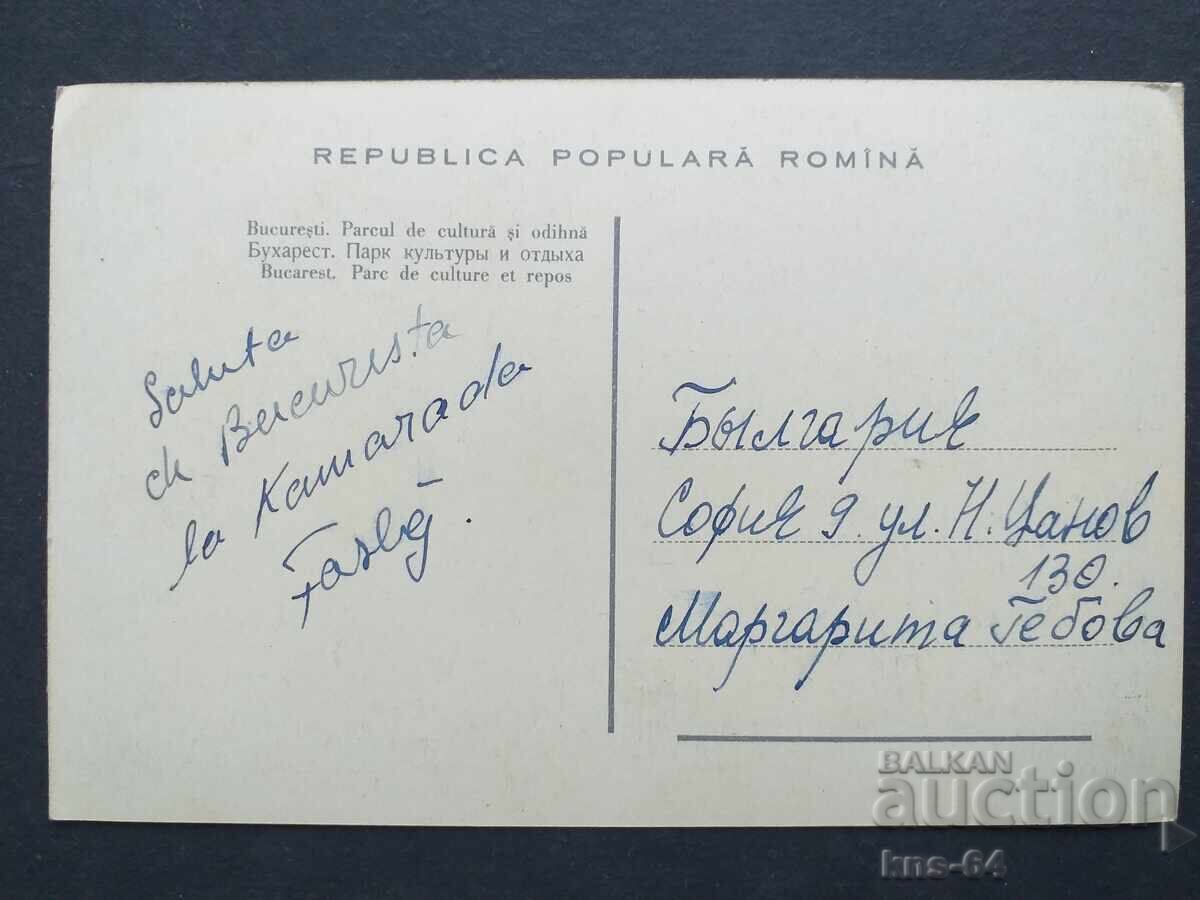 REPUBLICA POPULARĂ ROMÎNĂ
Bucureşti. Parcul de cultură şi odihnă
Бухарест. Парк культуры и отдыха
Bucarest. Parc de culture et repos
Saluta
de Bucuresta
la Kamarada
Былгария
София 9. ул. Н. Цанов
130.
Маргарита Гебова
BALKAN
auction
kns-64